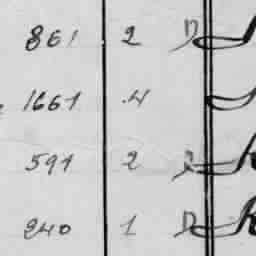 861 2 D
1661 .4
591 2
240 1 D